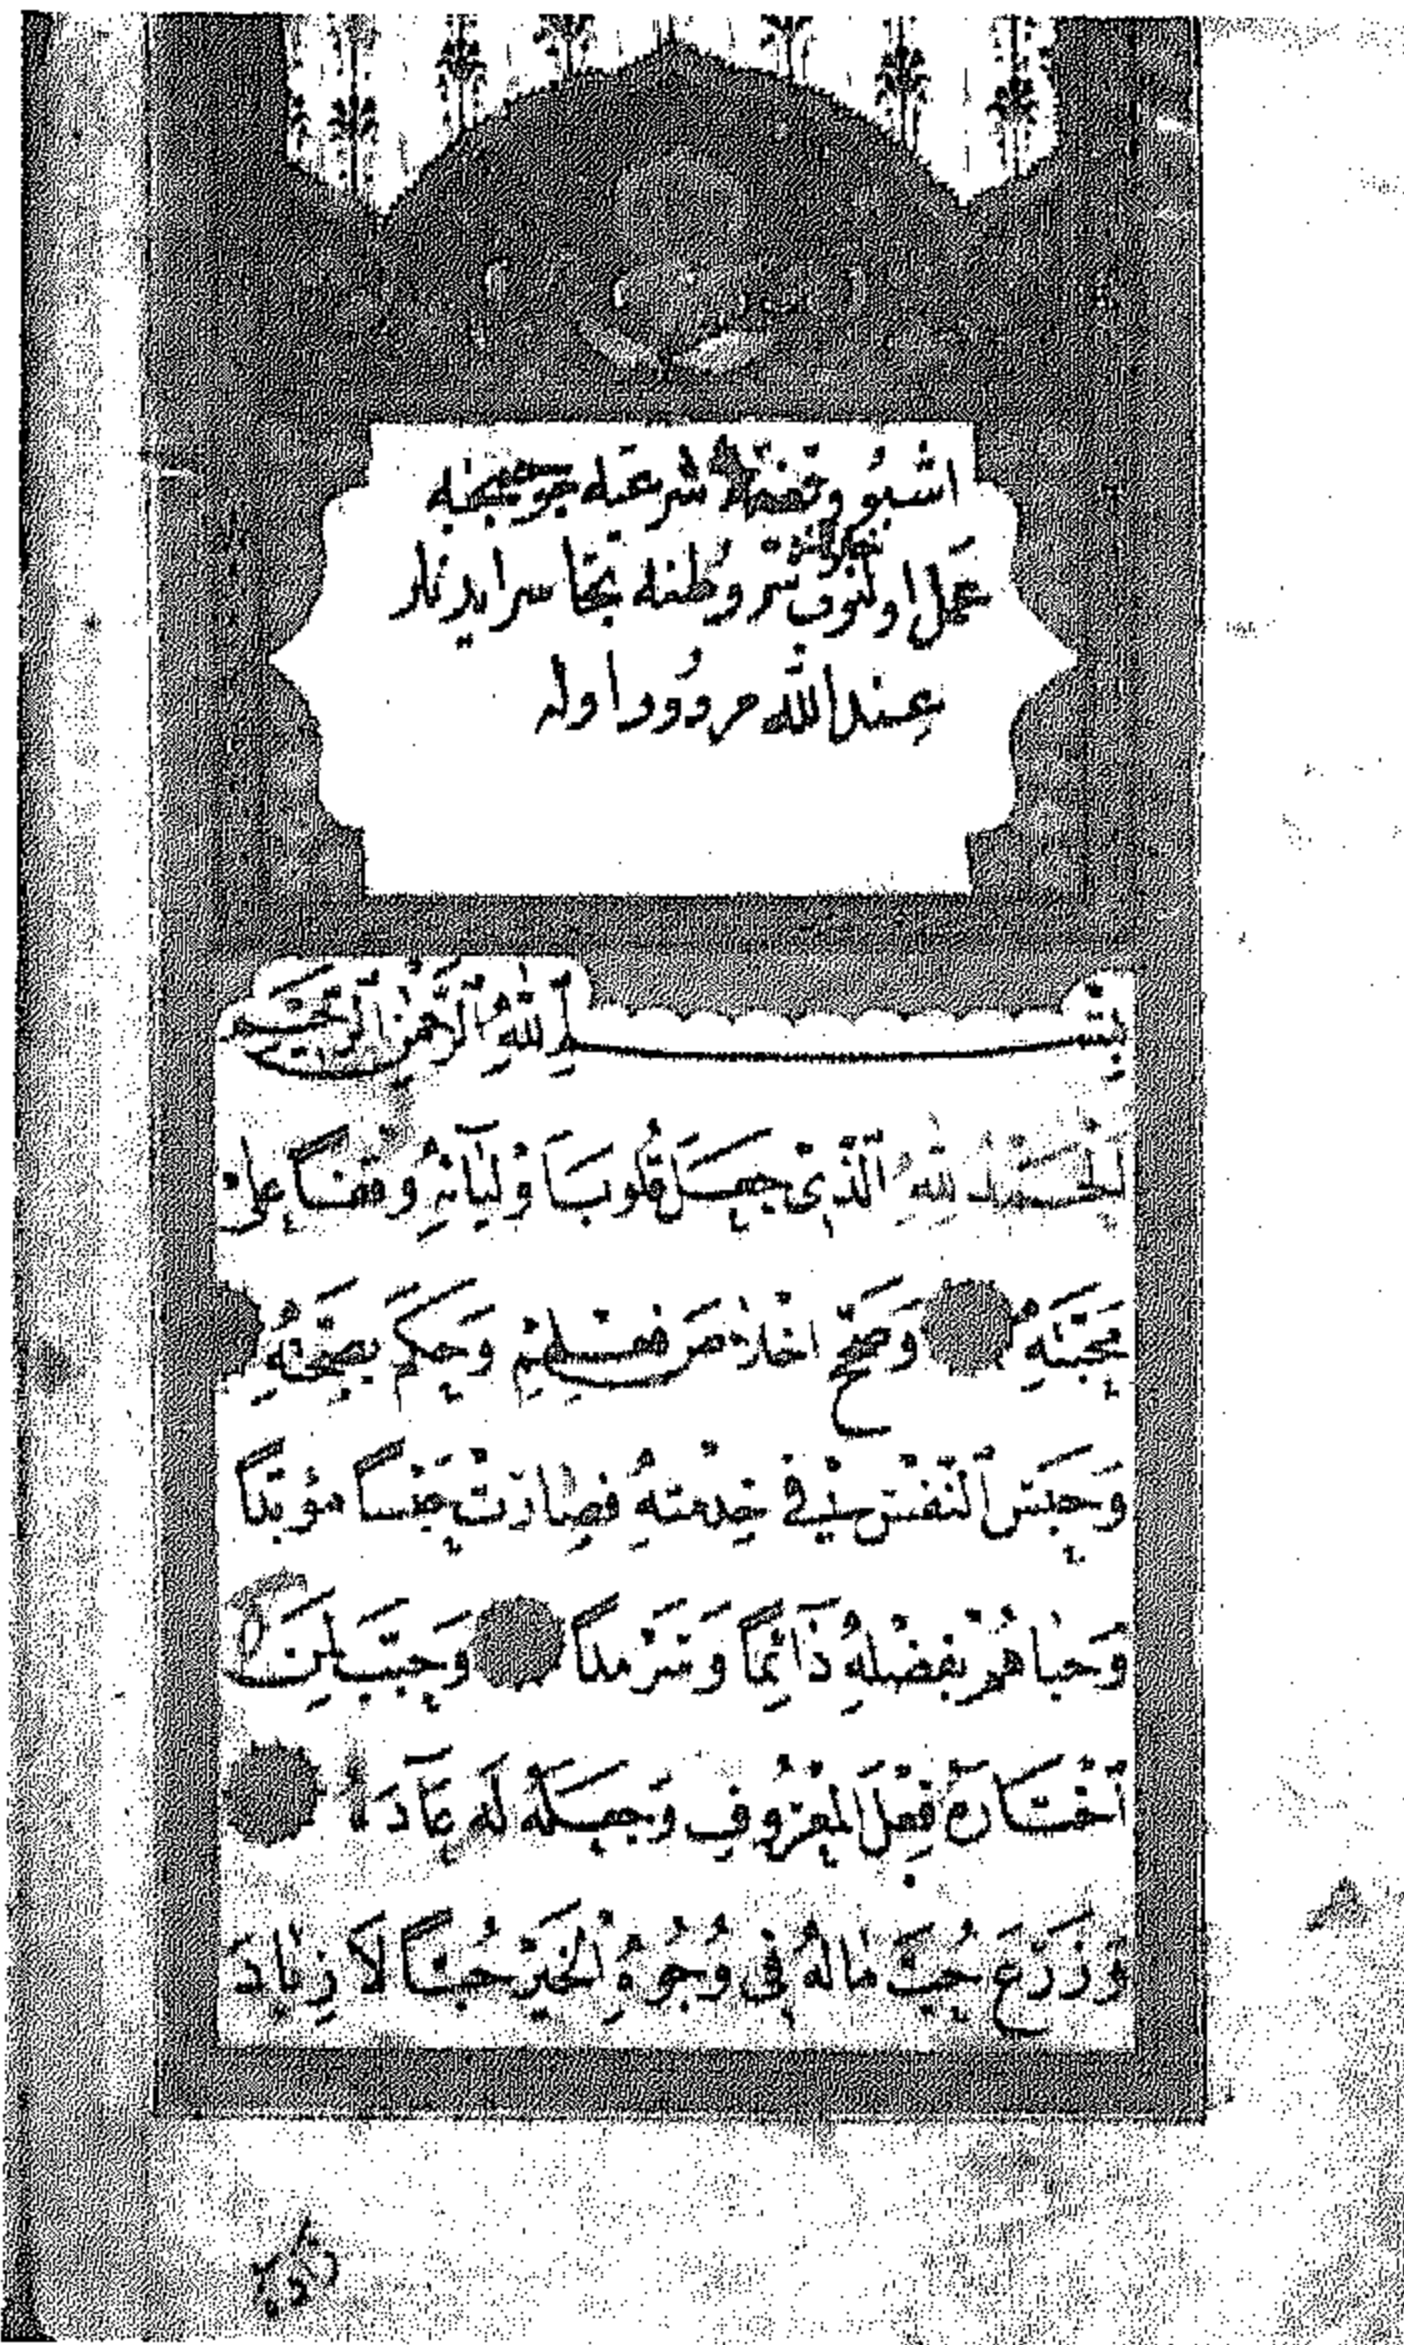 اشبو وقفیهٔ شرعیه موجبنجه
عمل اولنوب شروطنه تجاسر ایدنلر
عند الله مردود اوله
بِسْمِ اللّٰهِ الرَّحْمٰنِ الرَّحِيمِ
اَلْحَمْدُ لِلّٰهِ الَّذِي جَعَلَ قُلُوبَ اَوْلِيَآئِهِ وَقْفًا عَلَى
مَحَبَّتِهِ وَصَحَّحَ اِخْلَاصَ فِعْلِهِمْ وَحَكَمَ بِصِحَّتِهِ
وَحَبَسَ اَنْفُسَهُمْ فِي خِدْمَتِهِ فَصَارَتْ حَبْسًا مُؤَبَّدًا
وَحَبَاهُمْ بِفَضْلِهِ دَآئِمًا وَسَرْمَدًا وَحَبَّبَ لِمَنْ
اخْتَارَهُ فِعْلَ الْمَعْرُوفِ وَجَعَلَهُ لَهُ عَادَةً
وَزَرَعَ حُبَّ مَالِهِ فِي وُجُوهِ الْخَيْرِ حُبًّا لَازْدِيَادَ